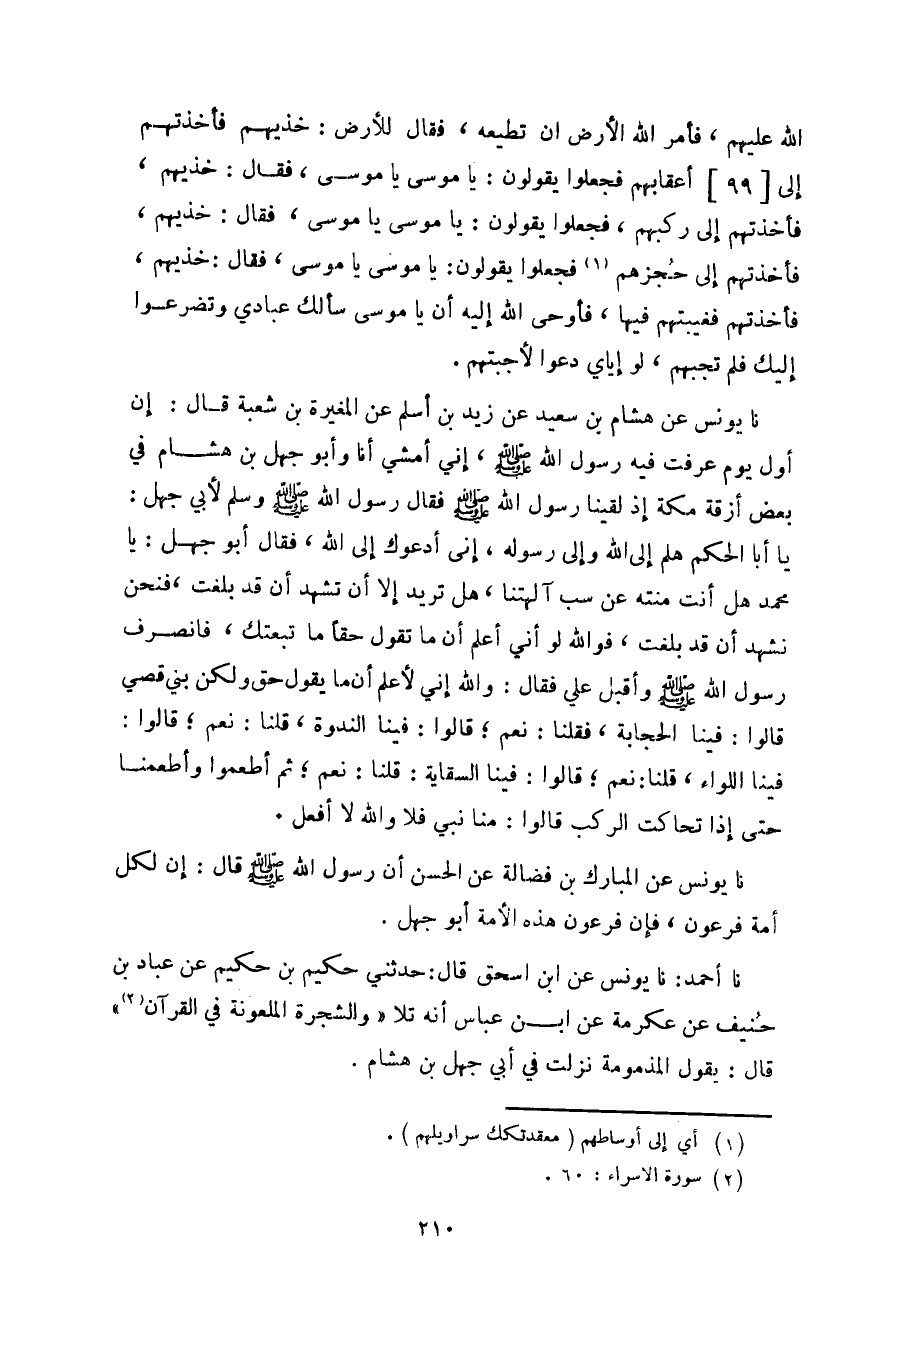 الله عليهم ، فأمر الله الأرض ان تطيعه ، فقال للأرض : خذيهم فأخذتهم
إلى [ ٩٩ ] أعقابهم فجعلوا يقولون : يا موسى يا موسى ، فقال : خذيهم ،
فأخذتهم إلى ركبهم ، فجعلوا يقولون : يا موسى يا موسى ، فقال : خذيهم ،
فأخذتهم إلى حُجزهم (١) فجعلوا يقولون: يا موسى يا موسى ، فقال :خذيهم ،
فأخذتهم فغيبتهم فيها ، فأوحى الله إليه أن يا موسى سألك عبادي وتضرعوا
إليك فلم تجبهم ، لو إياي دعوا لأجبتهم .
نا يونس عن هشام بن سعيد عن زيد بن أسلم عن المغيرة بن شعبة قال : إن
أول يوم عرفت فيه رسول الله ﷺ ، إني أمشي أنا وأبو جهل بن هشام في
بعض أزقة مكة إذ لقينا رسول الله ﷺ فقال رسول الله ﷺ وسلم لأبي جهل :
يا أبا الحكم هلم إلى الله وإلى رسوله ، إنى أدعوك إلى الله ، فقال أبو جهل : يا
محمد هل أنت منته عن سب آلهتنا ، هل تريد إلا أن تشهد أن قد بلغت ،فنحن
نشهد أن قد بلغت ، فوالله لو أني أعلم أن ما تقول حقاً ما تبعتك ، فانصرف
رسول الله ﷺ وأقبل علي فقال : والله إني لأعلم أن ما يقول حق ولكن بني قصي
قالوا : فينا الحجابة ، فقلنا : نعم ؛ قالوا : فينا الندوة ، قلنا : نعم ؛ قالوا :
فينا اللواء ، قلنا: نعم ؛ قالوا : فينا السقاية : قلنا : نعم ؛ ثم أطعموا وأطعمنا
حتى إذا تحاكت الركب قالوا : منا نبي فلا والله لا أفعل .
نا يونس عن المبارك بن فضالة عن الحسن أن رسول الله ﷺ قال : إن لكل
أمة فرعون ، فإن فرعون هذه الأمة أبو جهل .
نا أحمد: نا يونس عن ابن اسحق قال: حدثني حكيم بن حكيم عن عباد بن
حُنيف عن عكرمة عن ابن عباس أنه تلا « والشجرة الملعونة في القرآن(٢)»
قال : يقول المذمومة نزلت في أبي جهل بن هشام .
(١) أي إلى أوساطهم ( معقدتكك سراويلهم ) .
(٢) سورة الاسراء : ٦٠ .
٢١٠